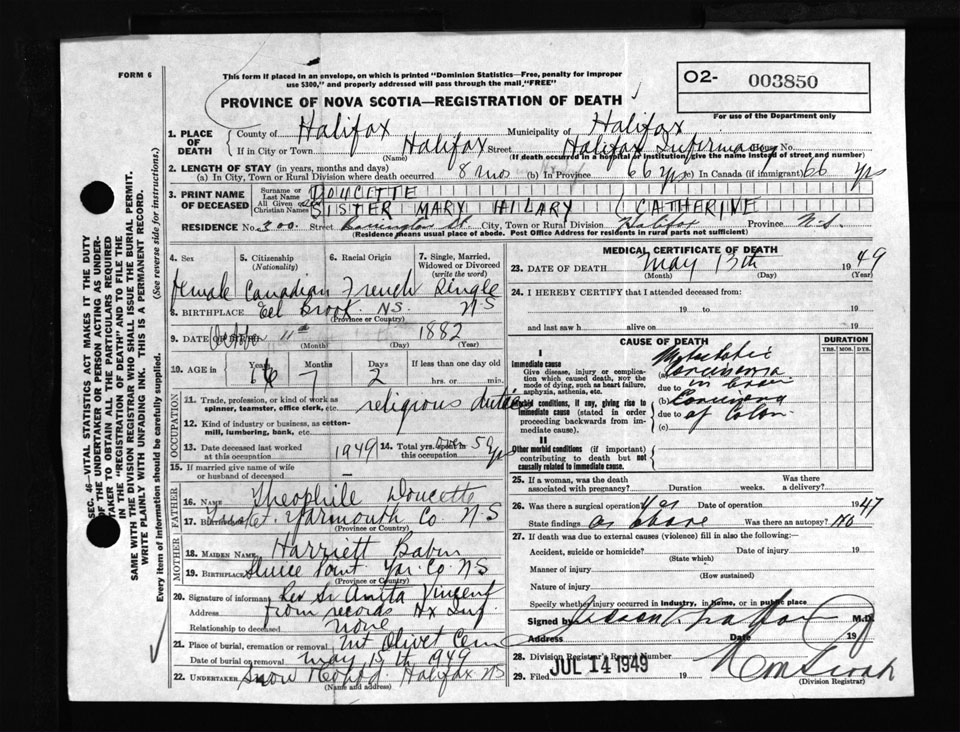 FORM 6
This form if placed in an envelope, on which is printed "Dominion Statistics—Free, penalty for improper
use $300," and properly addressed will pass through the mail, "FREE"
O2- 003850
For use of the Department only
PROVINCE OF NOVA SCOTIA—REGISTRATION OF DEATH
1. PLACE OF DEATH
County of Halifax Municipality of Halifax
If in City or Town Halifax Street Halifax Infirmary No.
(Name) (If death occurred in a hospital or institution, give name instead of street and number)
2. LENGTH OF STAY (in years, months and days)
(a) In City, Town or Rural Division where death occurred 8 mos (b) In Province 66 yrs (c) In Canada (if immigrant) 66 yrs
3. PRINT NAME OF DECEASED
Surname or Last Name DOUCETTE
All Given or Christian Names SISTER MARY HILARY (CATHERINE
RESIDENCE No. 300 Street Barrington St. City, Town or Rural Division Halifax Province N-S.
(Residence means usual place of abode. Post Office Address for residents in rural parts not sufficient)
4. Sex 5. Citizenship (Nationality) 6. Racial Origin 7. Single, Married, Widowed or Divorced (write the word)
female Canadian French Single
8. BIRTHPLACE Eel Brook N.S. NS
(Province or Country)
9. DATE OF BIRTH October 11th 1882
(Month) (Day) (Year)
10. AGE in Years Months Days If less than one day old
66 7 2 hrs. or min.
OCCUPATION
11. Trade, profession, or kind of work as spinner, teamster, office clerk, etc. religious duties
12. Kind of industry or business, as cotton-mill, lumbering, bank, etc.
13. Date deceased last worked at this occupation 1949 14. Total yrs. spent in this occupation over 50 yrs
15. If married give name of wife or husband of deceased
FATHER
16. NAME Theophile Doucette
17. BIRTHPLACE Tusket. Yarmouth Co N-S
(Province or Country)
MOTHER
18. MAIDEN NAME Harriett Babin
19. BIRTHPLACE Sluice Point Yar. Co NS
(Province or Country)
20. Signature of informant Rev Sr Anita Vincent
Address From records Hx Inf.
Relationship to deceased None
21. Place of burial, cremation or removal Mt Olivet Cem
Date of burial or removal May 15th 1949
22. UNDERTAKER Snow Halifax NS
(Name and address)
MEDICAL CERTIFICATE OF DEATH
23. DATE OF DEATH May 13th 1949
(Month) (Day) (Year)
24. I HEREBY CERTIFY that I attended deceased from:
19 to 19
and last saw h alive on 19
CAUSE OF DEATH
DURATION
YRS. MOS. DYS.
I
Immediate cause
Give disease, injury or complication which caused death, not the mode of dying, such as heart failure, asphyxia, asthenia, etc.
(a) Metastatic Carcinoma
due to
Morbid conditions, if any, giving rise to immediate cause (stated in order proceeding backwards from immediate cause).
(b) Carcinoma
due to of Colon
(c)
II
Other morbid conditions (if important) contributing to death but not causally related to immediate cause.
25. If a woman, was the death associated with pregnancy? Duration weeks. Was there a delivery?
26. Was there a surgical operation? Yes Date of operation 1947
State findings as above Was there an autopsy? No
27. If death was due to external causes (violence) fill in also the following:
Accident, suicide or homicide? Date of injury 19
(State which)
Manner of injury
(How sustained)
Nature of injury
Specify whether injury occurred in industry, in home, or in public place
Signed by M.D.
Address Date 19
28. Division Registrar's Record Number
29. Filed JUL 14 1949 19
(Division Registrar)
SEC. 46—VITAL STATISTICS ACT MAKES IT THE DUTY
OF THE UNDERTAKER OR PERSON ACTING AS UNDER-
TAKER TO OBTAIN ALL THE PARTICULARS REQUIRED
IN THE "REGISTRATION OF DEATH" AND TO FILE THE
SAME WITH THE DIVISION REGISTRAR WHO SHALL ISSUE THE BURIAL PERMIT.
WRITE PLAINLY WITH UNFADING INK. THIS IS A PERMANENT RECORD.
Every item of information should be carefully supplied. (See reverse side for instructions.)